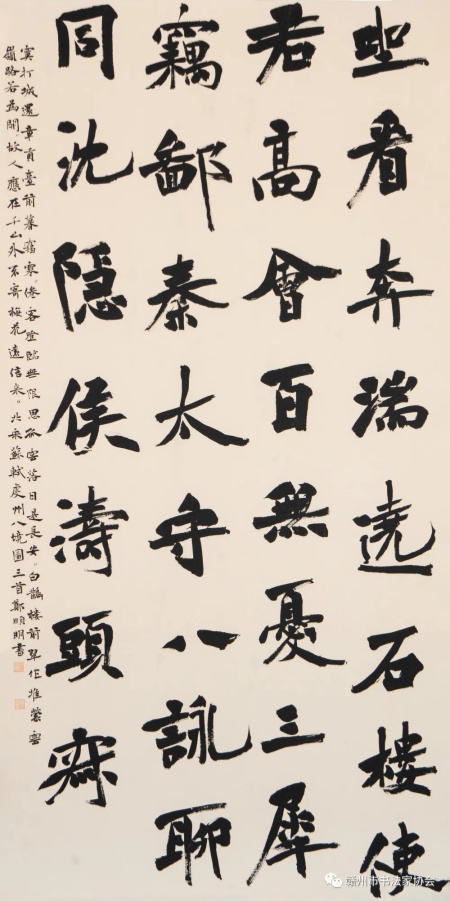 坐看奔湍遶石樓使
君高會百無憂三犀
竊鄙秦太守八詠聊
同沈隱侯濤頭寂
寞打城還章貢臺前暮靄寒。倦客登臨無限思孤雲落日是長安。白鵲樓前翠作堆縈雲
嶺路若為開故人應在千山外不寄梅花遠信來。北宋蘇軾虔州八境圖三首鄭順明書
赣州市书法家协会